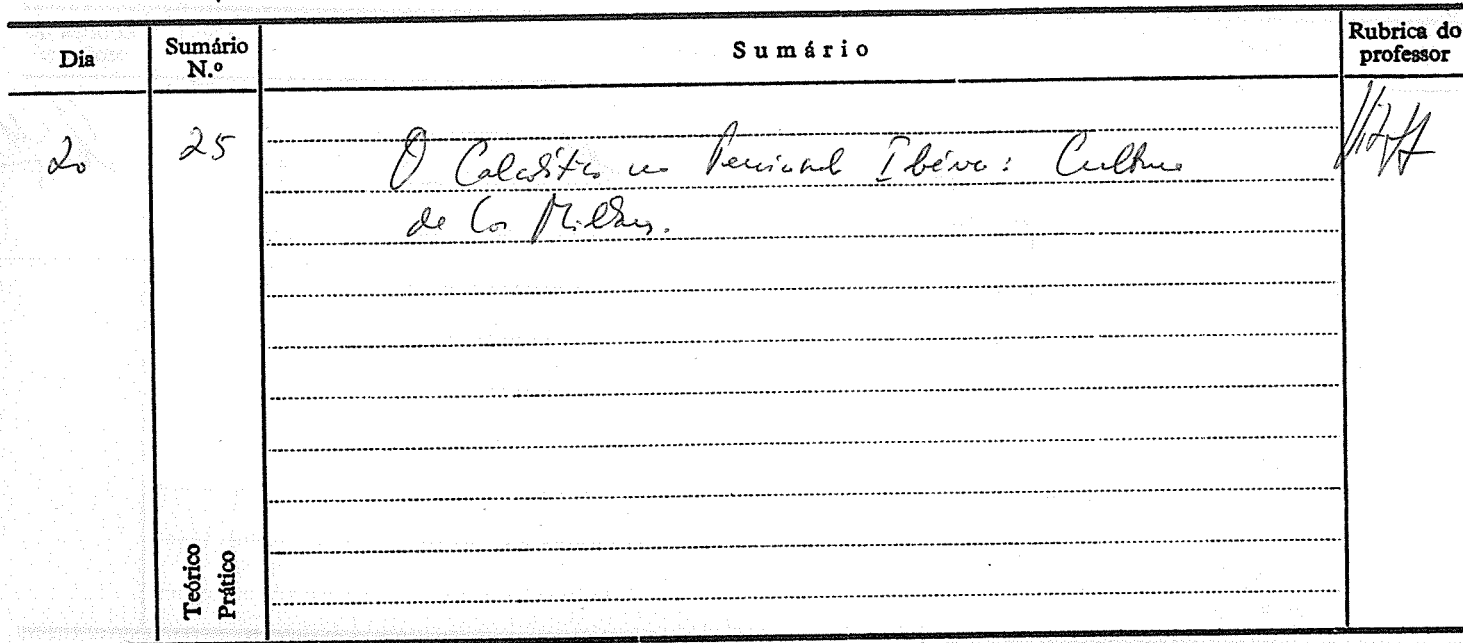 Dia
Sumário N.º
Sumário
Rubrica do professor
20
25
O Calcolítico na Península Ibérica: Cultura
de Los Millares.
Teórico
Prático